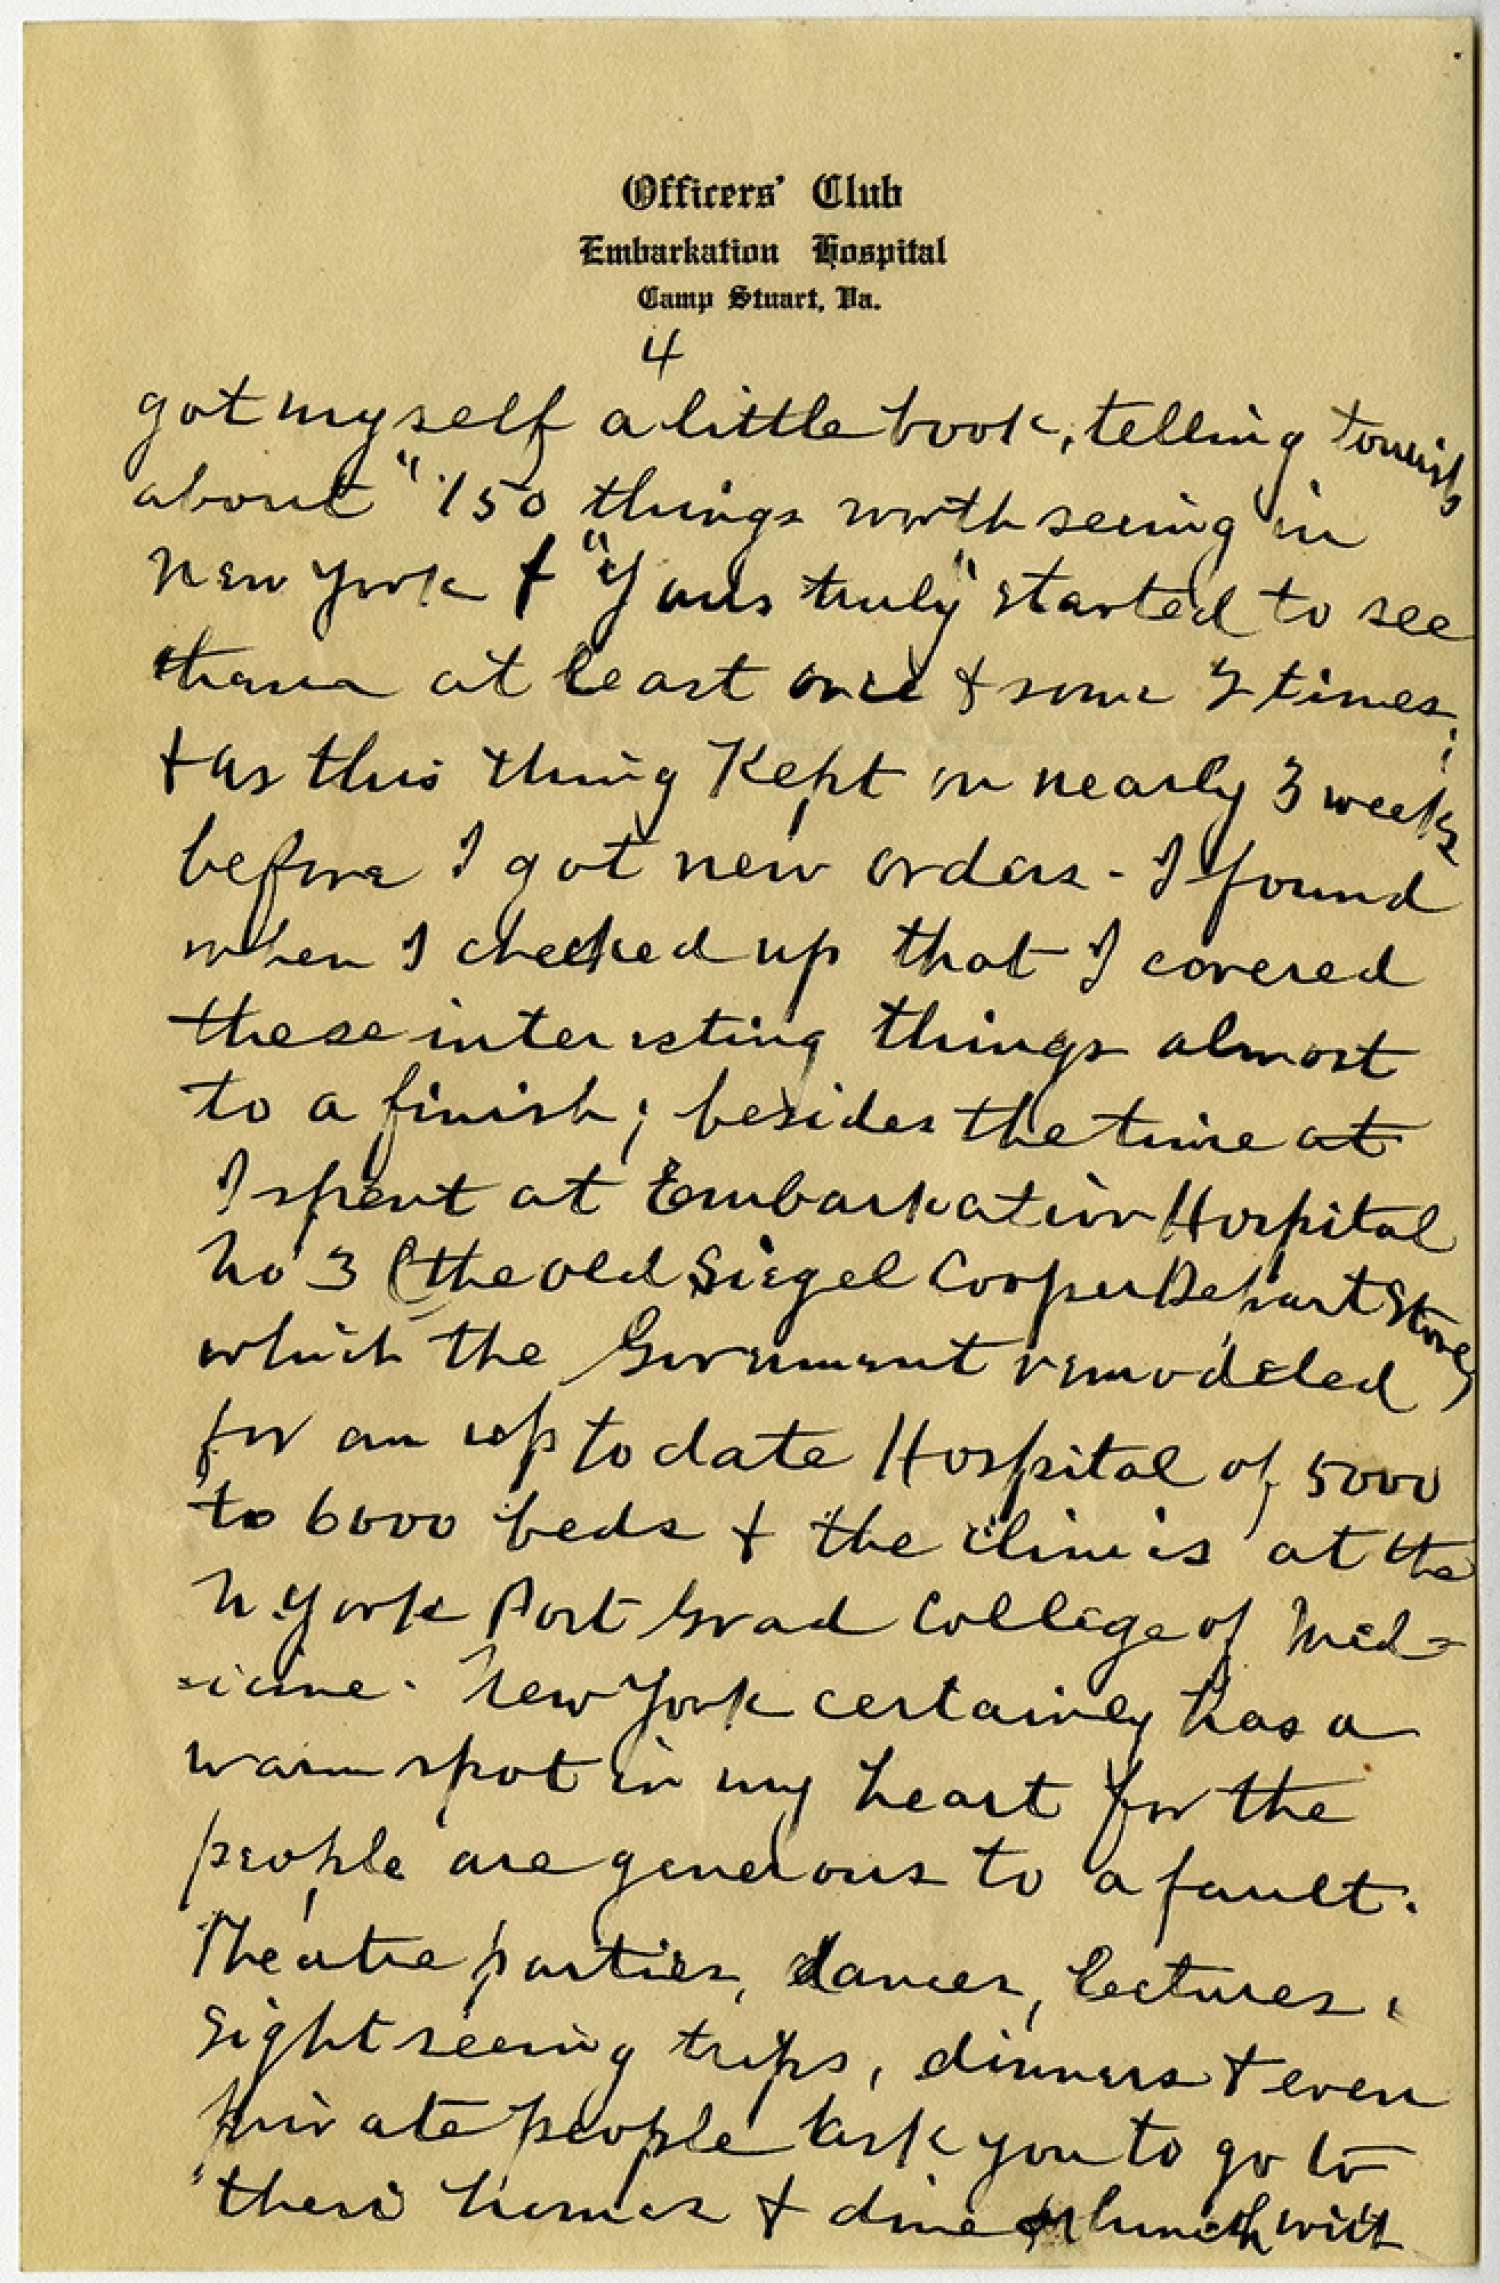 Officers' Club
Embarkation Hospital
Camp Stuart, Va.
4
got myself a little book, telling tourists
about "150 things worth seeing in
New York & "Yours truly" started to see
them at least once & some 2 times;
& as this thing Kept on nearly 3 weeks
before I got new orders - I found
when I checked up that I covered
these interesting things almost
to a finish; besides the time at
I spent at Embarkation Hospital
No 3 (the old Siegel Cooper Depart Store)
which the Government remodeled
for an up to date Hospital of 5000
to 6000 beds & the clinics at the
N. York Post Grad College of Med-
-icine. New York certainly has a
warm spot in my heart for the
people are generous to a fault.
Theatre parties, dances, lectures,
sight seeing trips, dinners & even
private people ask you to go to
their homes & dine or lunch with